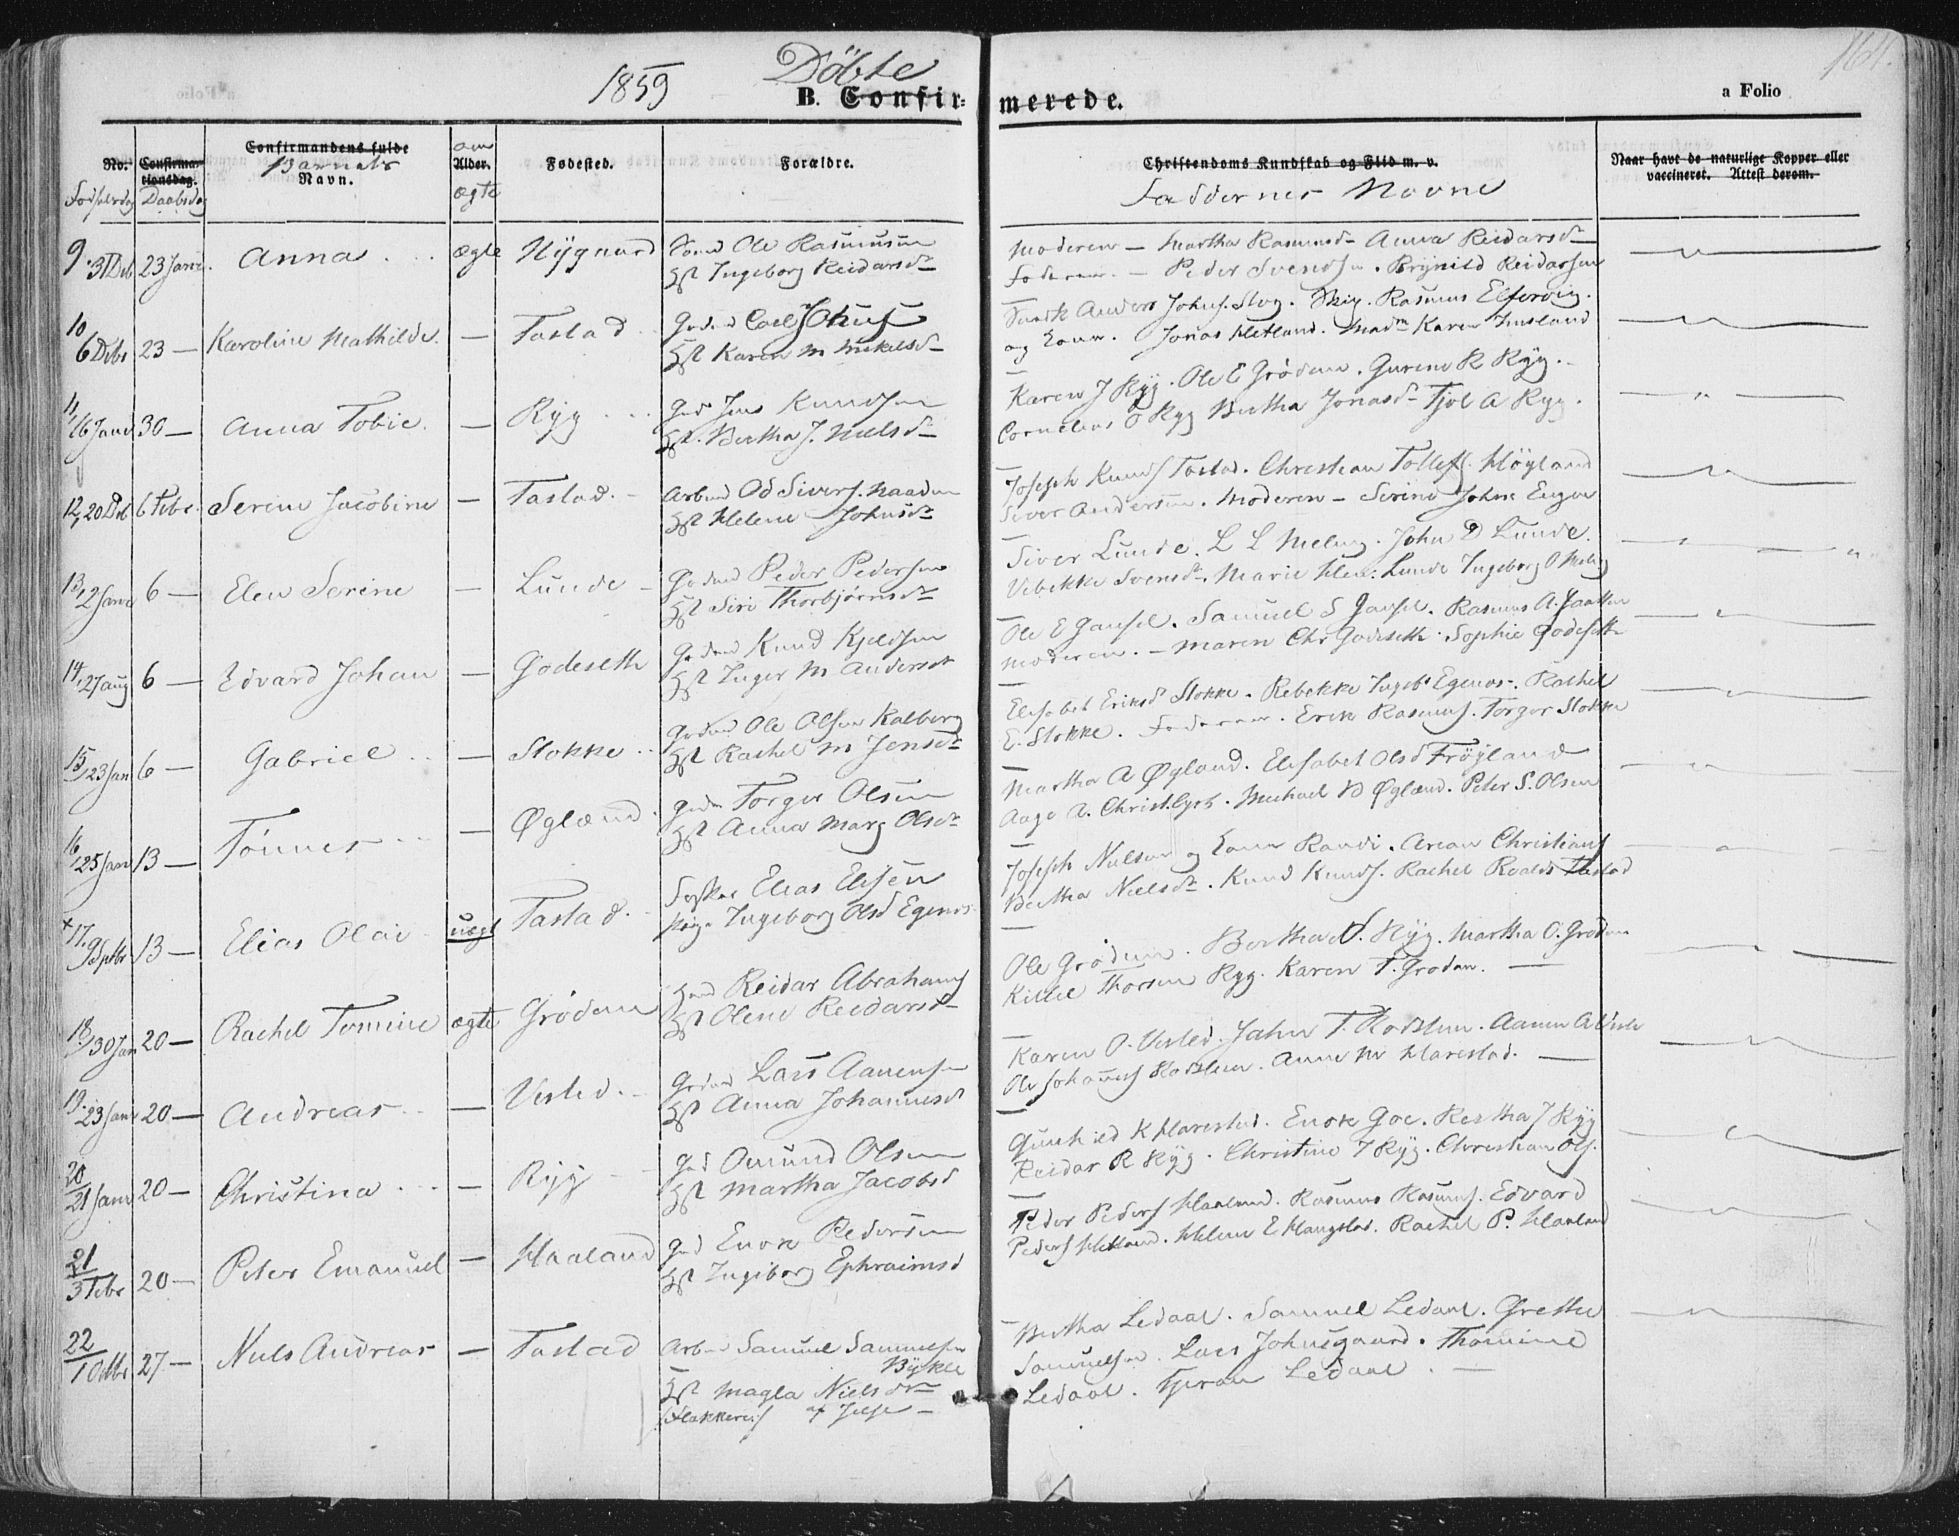 1859 Döbte 164.
B. Confirmerede. a Folio
No. Fodselsdag
Confirmationsdag. Daabsdag
Confirmandens fulde Barnets Navn.
om Alder. ægte
Fødested.
Forældre.
Christendoms Kundskab og Flid m. v.
Faddernes Navne
Naar havt de naturlige Kopper eller
vaccineret. Attest derom.
9. 31 Deb 23 Janr. Anna ægte Nygaard Ole Rasmussen
Hst Ingeborg Reidarsdr
Moderen — Martha Rasmusdr Anna Reidarsdr
Faderen. — Peder Svendsen. Brynild Reidarsen
10 6 Debr 23 — Karoline Mathilde. — Tastad Carl Johnsen
Hst Karen M Mikelsdr
Anders Johns. Rasmus
og Kone. Jonas Hetland. Madm Karen Imsland
11 16 Janr 30 — Anna Tobie. — Ryg Gmd Jens Knudsen
Hst. Bertha J. Nielsdr
Karen J Ryg. Ole E Grödem. Gurine R Ryg.
Cornelius O Ryg Bertha Jonasdr A Ryg.
12, 20 Deb 6 Febr. Serine Jacobine — Tastad. Arbmd Od Sivers. Naaden
Hst Helene Johnsdr
Joseph Knuds Tastad. Christian Tollefs. Höyland
Siver Andersen. Moderen — Serine Johne Eugen
13, 2 Janr 6 — Elen Serine — Lunde Peder Pedersen
Hst Siri Thorbjørnsdr
Siver Lunde. L L Meling. John D Lunde.
Vibekke Svensdr. Marie Lunde Ingeborg O Meling
14, 27 aug 6 — Edvard Johan — Godeseth Knud Kjeldsen
Hst Inger M Andersdr
Ole E Gausel. Samuel S Gausel. Rasmus A.
Moderen. — Maren Chr Godeseth. Sophie Godeseth
15, 23 Jan 6 — Gabriel — Stokke Ole Olsen Kalberg
Hst Rachel M Jensdr
Elisabet Eriksd Stokke. Rebekke Egenes. Rachel
E. Stokke. Faderen. Erik Rasmus. Torger Stokke
16, 25 Janr 13 — Tönnes — Øglænd Torger Olsen
Hst Anna Marg Olsdr
Martha A Øglænd. Elisabet Olsd Fröyland
Aage A. Michael Øglænd. Peter S. Olsen
17, 9 Sptbr 13 — Elias Olai uægt Tastad. Elias Elisen
Pige Ingeborg Olsd Egenes.
Joseph Nielsen og Kone Randi. Christians
Bertha Nielsdr. Knud Knuds. Rachel Roalds Tastad
18, 30 Jan 20 — Rachel Tomine ægte Grödem Reidar Abrahams
Hst Olene Reidarsdr
Ole Grödem. Bertha Ryg. Martha O. Grödem
Kittil Thorsen Ryg. Karen T. Grodem. —
19. 23 Janr 20 — Andreas — Visted. Lars Aanensen
Hst Anna Johannesd
Karen O. Visted. John T. Aanen A
Ole Johannes Anne M Harestad. —
20 21 Janr 20 — Christina — Ryg Gmd Omund Olsen
Hst Martha Jacobsd
Gunhild K Harestad. Enok Goe. Bertha J Ryg
Reidar R Ryg. Christine J Ryg. Christian Ols.
21 3 Febr 20 — Peter Emanuel — Haaland Gmd Enok Pedersen
Hst Ingeborg Ephraimsd
Peder Peders Haaland. Rasmus Rasmus. Edvard
Peders Hetland. Helene E Haugstad. Rachel P. Haaland
22 1 Octbr 27 — Niels Andreas — Tastad Arbmd Samuel Samuelsen
Bykle
Hst Magla Nielsdr
af Jelse —
Bertha Ledaal. Samuel Ledaal. Grethe
Samuelsen. Lars Johnsgaard. Thomine
Ledaal. Ledaal. —